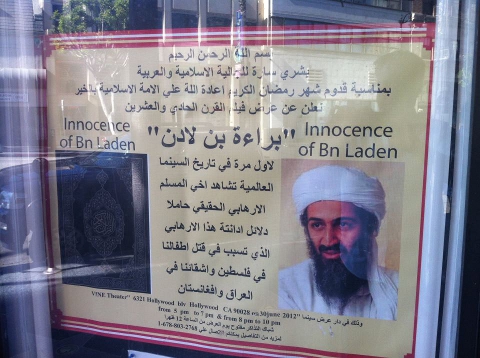 بسم الله الرحمن الرحيم
بشري سارة للجالية الاسلامية والعربية
بمناسبة قدوم شهر رمضان الكريم اعادة الله علي الامة الاسلامية بالخير
نعلن عن عرض فيلم القرن الحادي والعشرين
Innocence
of Bn Laden
"براءة بن لادن"
Innocence
of Bn Laden
لاول مرة في تاريخ السينما
العالمية تشاهد اخي المسلم
الارهابي الحقيقي حاملا
دلائل ادانتة هذا الارهابي
الذي تسبب في قتل اطفالنا
في فلسطين واشقائنا في
العراق وافغانستان
وذلك في دار عرض سينما "VINE Theater" 6321 Hollywood blv Hollywood CA 90028 on 30june 2012
from 5 pm to 7 pm & from 8 pm to 10 pm
شباك التذاكر مفتوح يوم العرض من الساعة 12 ظهرا
لمزيد من التفاصيل يمكنكم الاتصال علي 1-678-803-2768